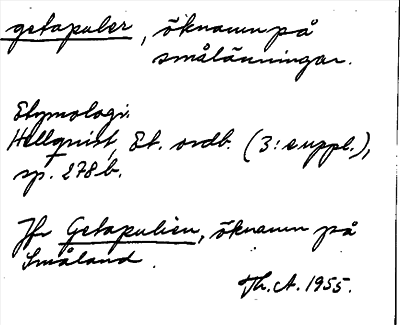 getapuler, öknamn på
smålänningar.
Etymologi:
Hellquist, Et. ordb. (3: e uppl.),
sp. 278 b.
Jfr Getapulien, öknamn på
Småland.
Th. A. 1955.